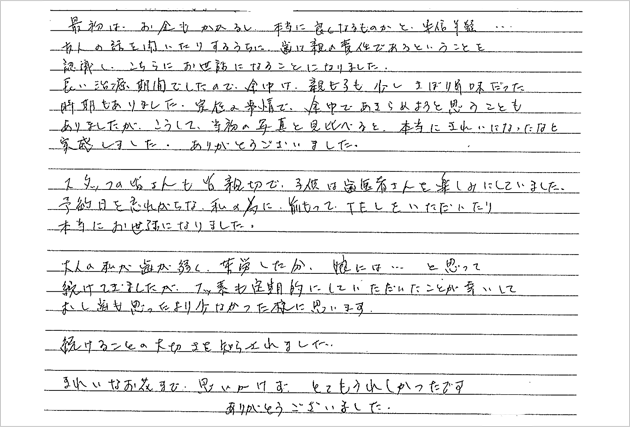 最初は、お金もかかるし、本当に良くなるものかと、半信半疑…
友人の話を聞いたりするうちに、歯は親の責任であるということを
認識し、こちらにお世話になることになりました。
長い治療期間でしたので、途中は、親も子も、少しさぼり気味だった
時期もありました。家庭の事情で、途中であきらめようと思うことも
ありましたが、こうして、当初の写真と見比べると、本当にきれいになったなと
実感しました。ありがとうございました。
スタッフの皆さんも皆親切で、子供は歯医者さんを楽しみにしていました。
予約日を忘れがちな、私の為に、前もって、TELをいただいたり
本当にお世話になりました。
大人の私が歯が弱く、苦労した分、娘には…と思って
続けてきましたが、フッ素も定期的にしていただいたことが幸いして
むし歯も思ったより少なかった様に思います。
続けることの大切さを知らされました。
きれいなお花まで、思いがけず、とてもうれしかったです
ありがとうございました。